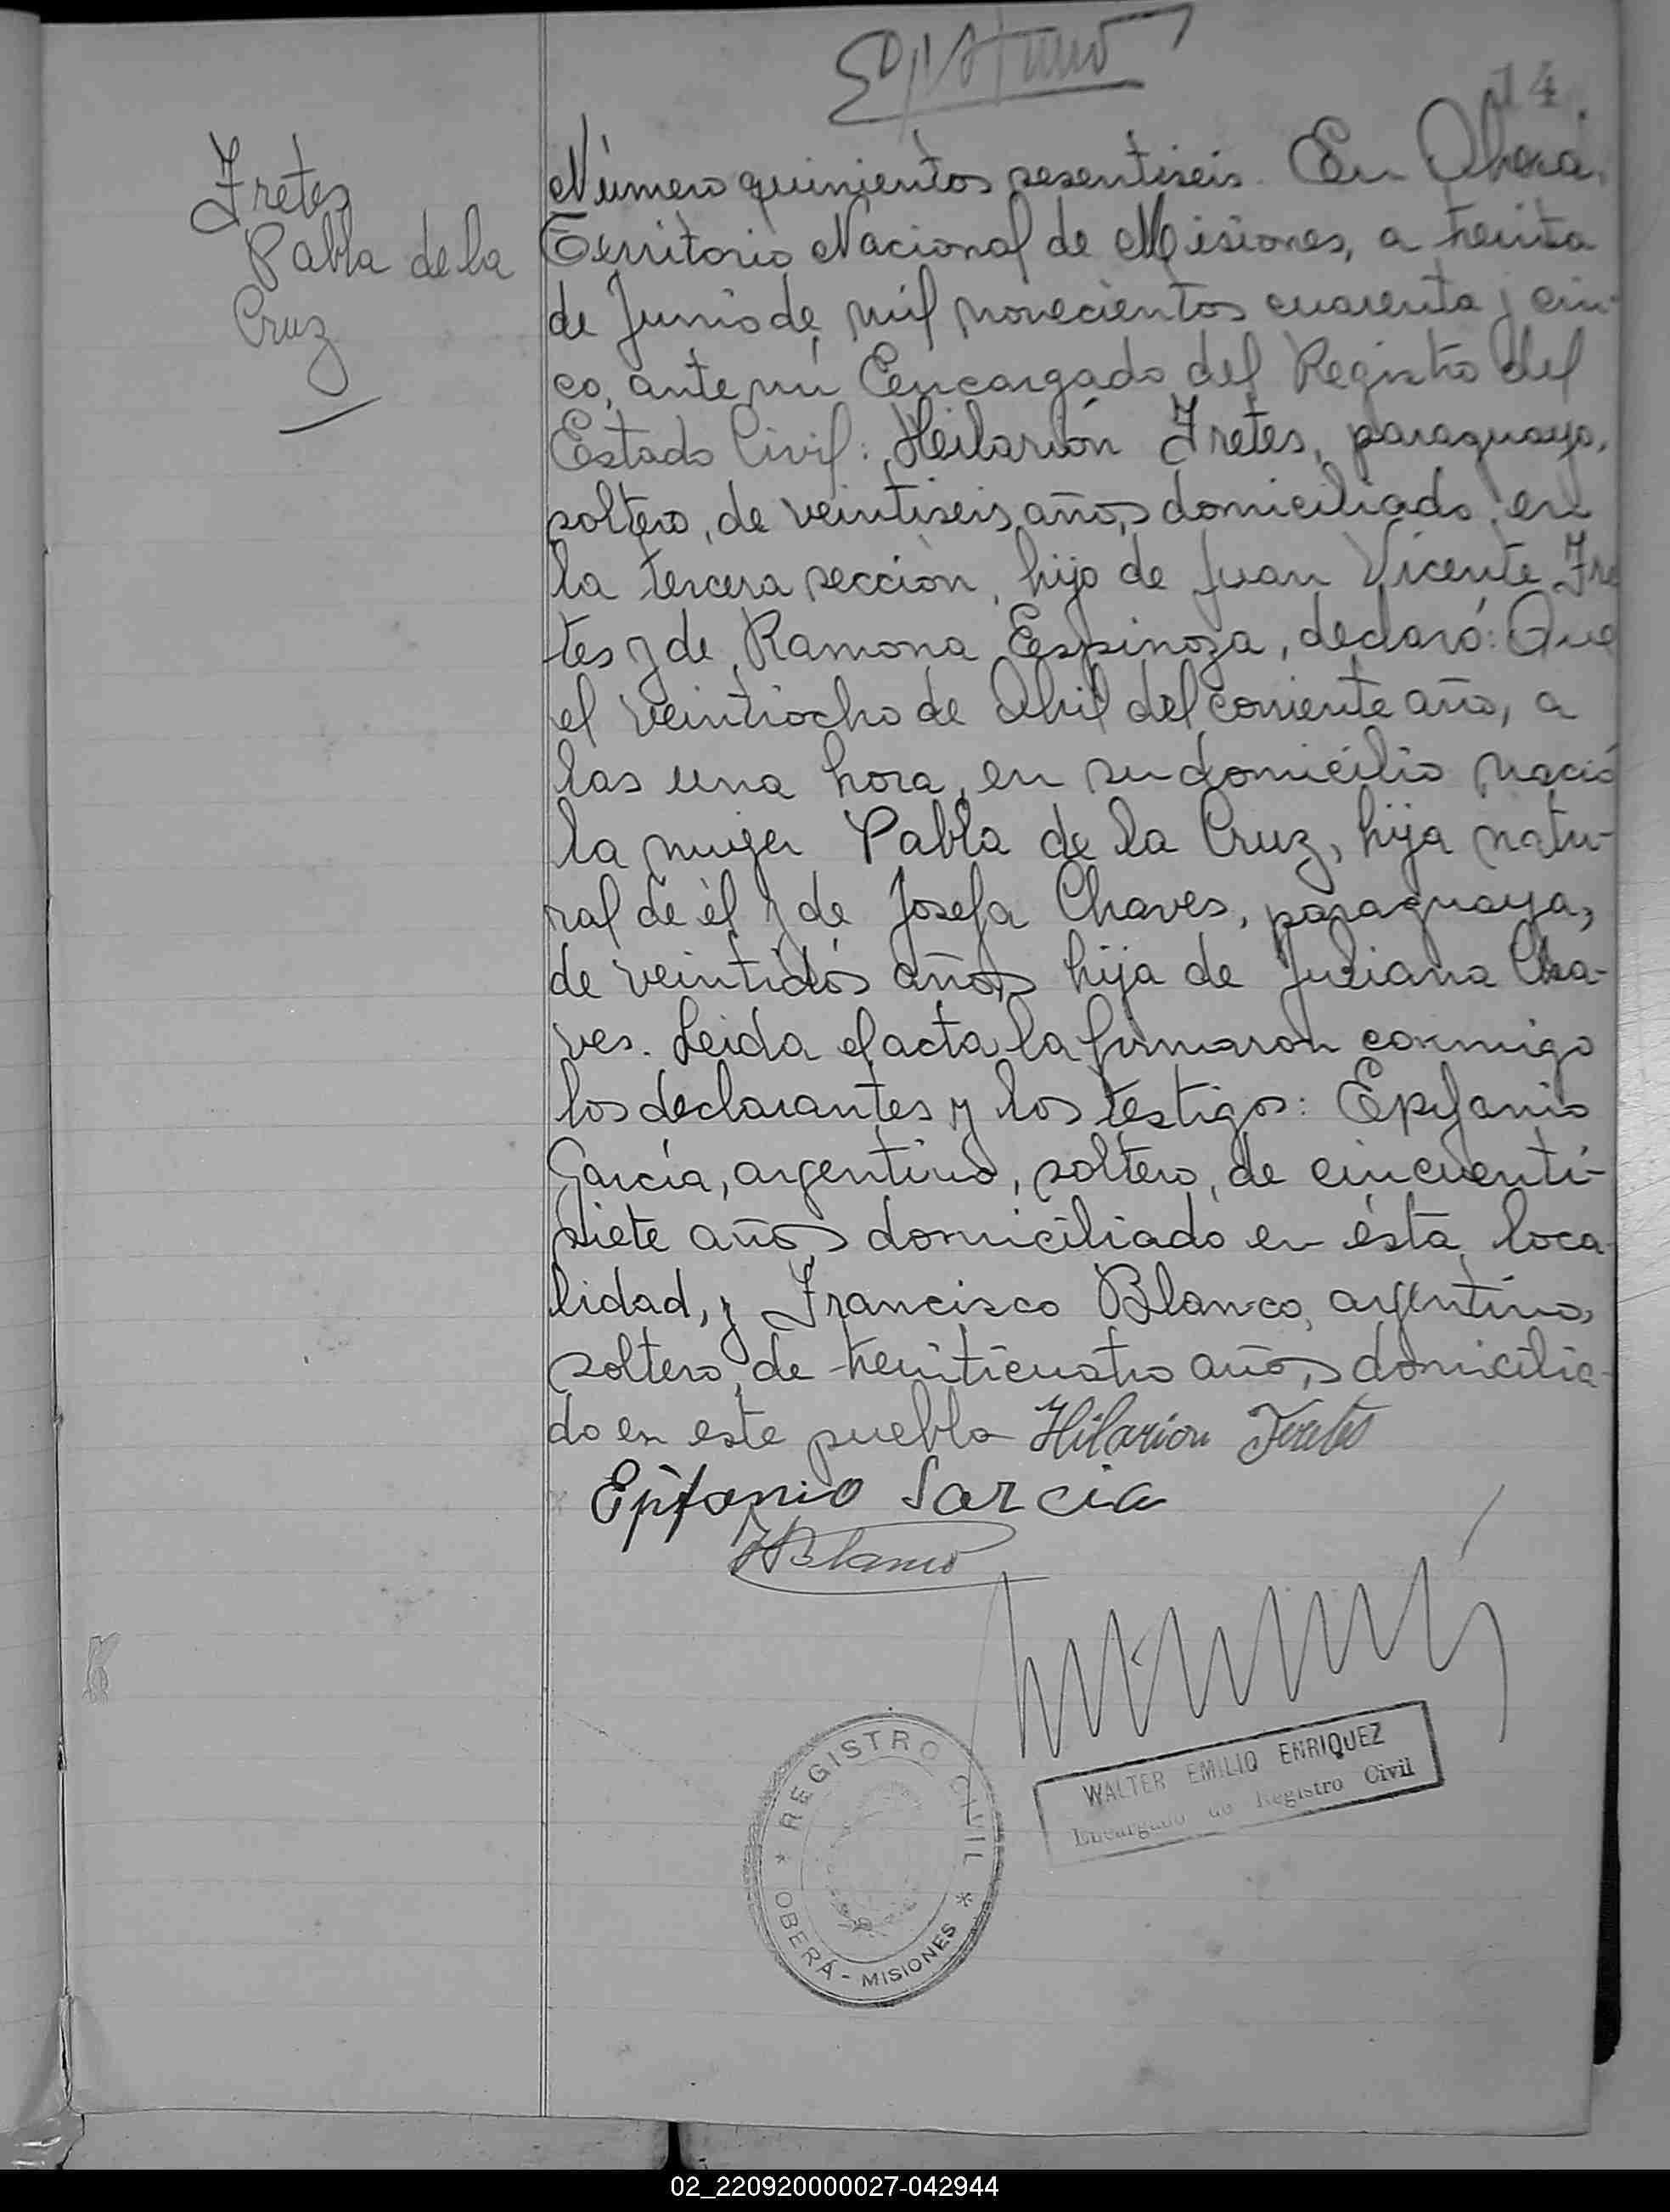 14
Fretes
Pabla de la
Cruz
Número quinientos sesentiseis. En Oberá,
Territorio Nacional de Misiones, a treinta
de Junio de mil novecientos cuarenta y cin-
co, ante mí Encargado del Registro del
Estado Civil: Heilarión Fretes, paraguayo,
soltero, de veintiseis años, domiciliado en
la tercera sección, hijo de Juan Vicente Fre
tes y de Ramona Espinoza, declaró: Que
el veintiocho de Abril del corriente año, a
las una hora, en su domicilio nació
la mujer Pabla de la Cruz, hija natu-
ral de él y de Josefa Chaves, paraguaya,
de veintidós años, hija de Juliana Cha-
ves. Leida el acta la firmaron conmigo
los declarantes y los testigos: Epifanio
García, argentino, soltero, de cincuenti-
siete años, domiciliado en ésta loca-
lidad, y Francisco Blanco, argentino,
soltero, de treinticuatro años, domicilia-
do en este pueblo Hilarion Fretes
Epifanio Garcia
FBlanco
REGISTRO CIVIL
* OBERÁ - MISIONES *
WALTER EMILIO ENRIQUEZ
Encargado de Registro Civil
02_220920000027-042944